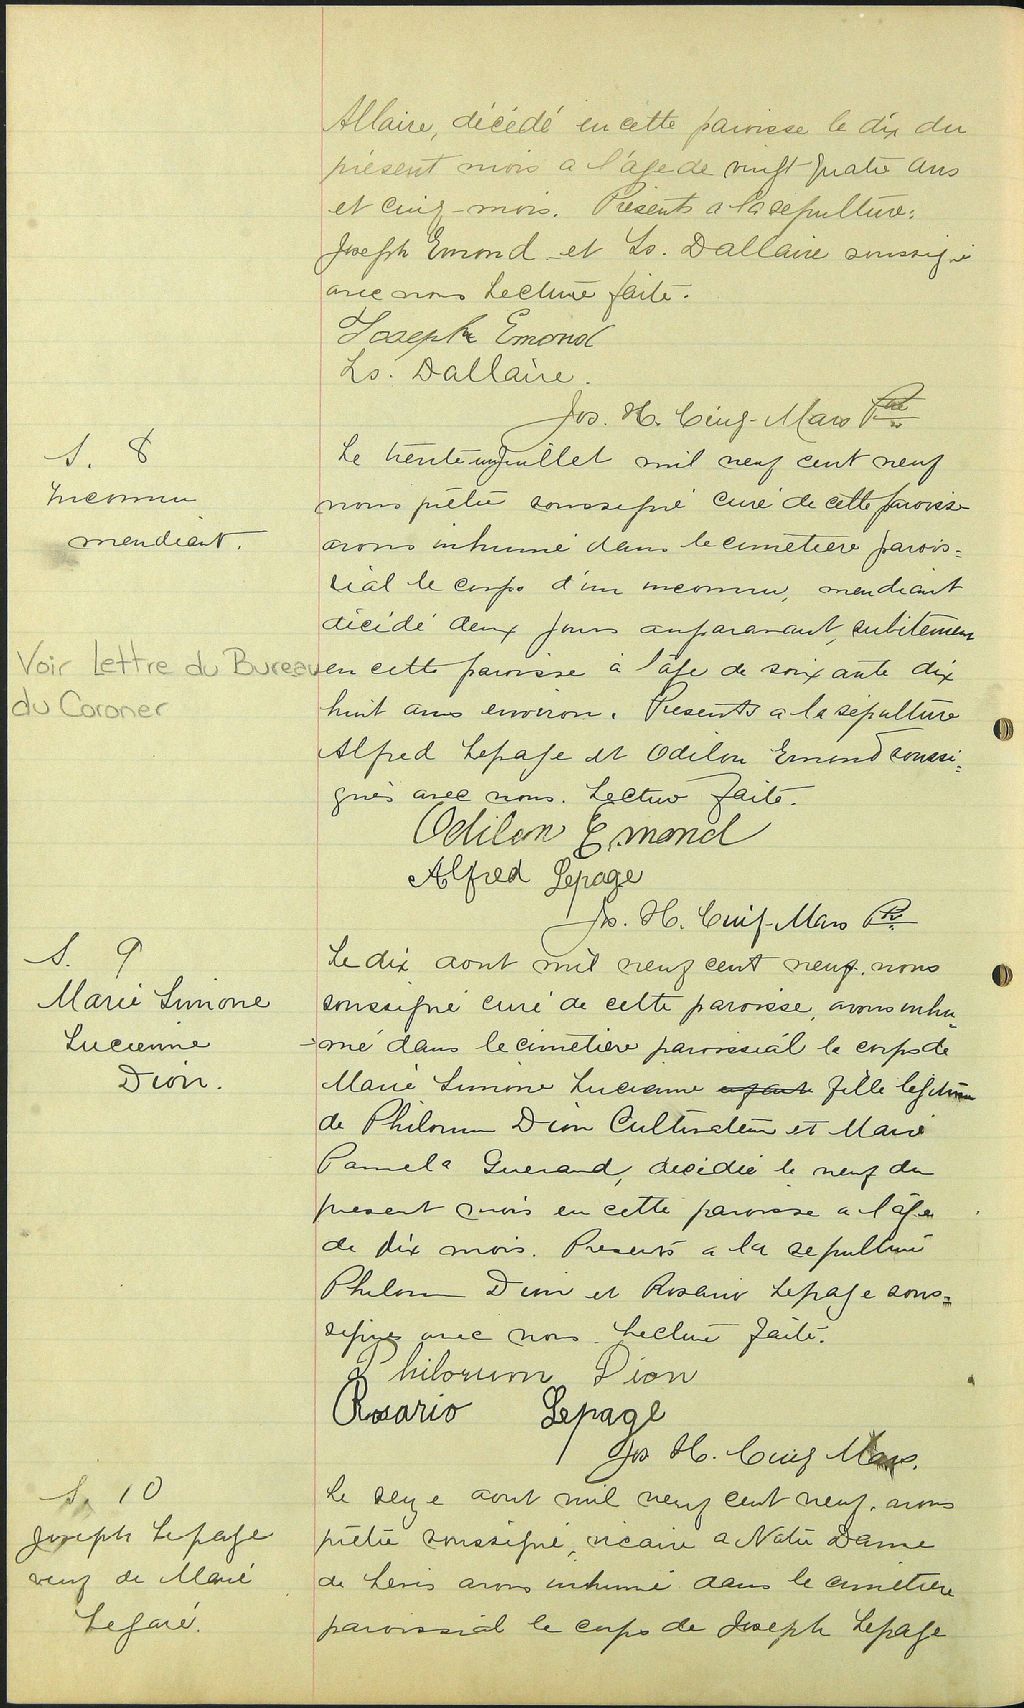 Allaire, décédé en cette paroisse le dix du
présent mois a l'âge de vingt quatre ans
et cinq mois. Présents a la sépulture:
Joseph Emond et Ls. Dallaire soussigné
avec nous Lecture faite.
Joseph Emond
Ls. Dallaire.
Jos. H. Cinq-Mars Ptre
S. 8
Inconnu
mendiant.
Voir Lettre du Bureau
du Coroner
Le trente un Juillet mil neuf cent neuf
nous prêtre soussigné curé de cette paroisse
avons inhumé dans le cimetière parois=
sial le corps d'un inconnu, mendiant
décédé deux jours auparavant, subitement
en cette paroisse à l'âge de soixante dix
huit ans environ. Présents a la sépulture
Alfred Lepage et Odilon Emond soussi=
gnés avec nous. Lecture faite.
Odilon Emond
Alfred Lepage
Jos. H. Cinq-Mars Ptr.
S. 9
Marie Simone
Lucienne
Dion.
Le dix aout mil neuf cent neuf, nous
soussigné curé de cette paroisse, avons inhu=
mé dans le cimetière paroissial le corps de
Marie Simone Lucienne enfant fille legitime
de Philorum Dion Cultivateur et Marie
Pamela Guerard, décédée le neuf du
present mois en cette paroisse a l'âge
de dix mois. Presents a la sepulture
Philorum Dion et Rosario Lepage sous=
signés avec nous Lecture faite.
Philorum Dion
Rosario Lepage
Jos H. Cinq Mars.
S. 10
Joseph Lepage
veuf de Marie
Legaré.
Le seize aout mil neuf cent neuf, nous
prêtre soussigné, vicaire a Notre Dame
de Levis avons inhumé dans le cimetière
paroissial le corps de Joseph Lepage